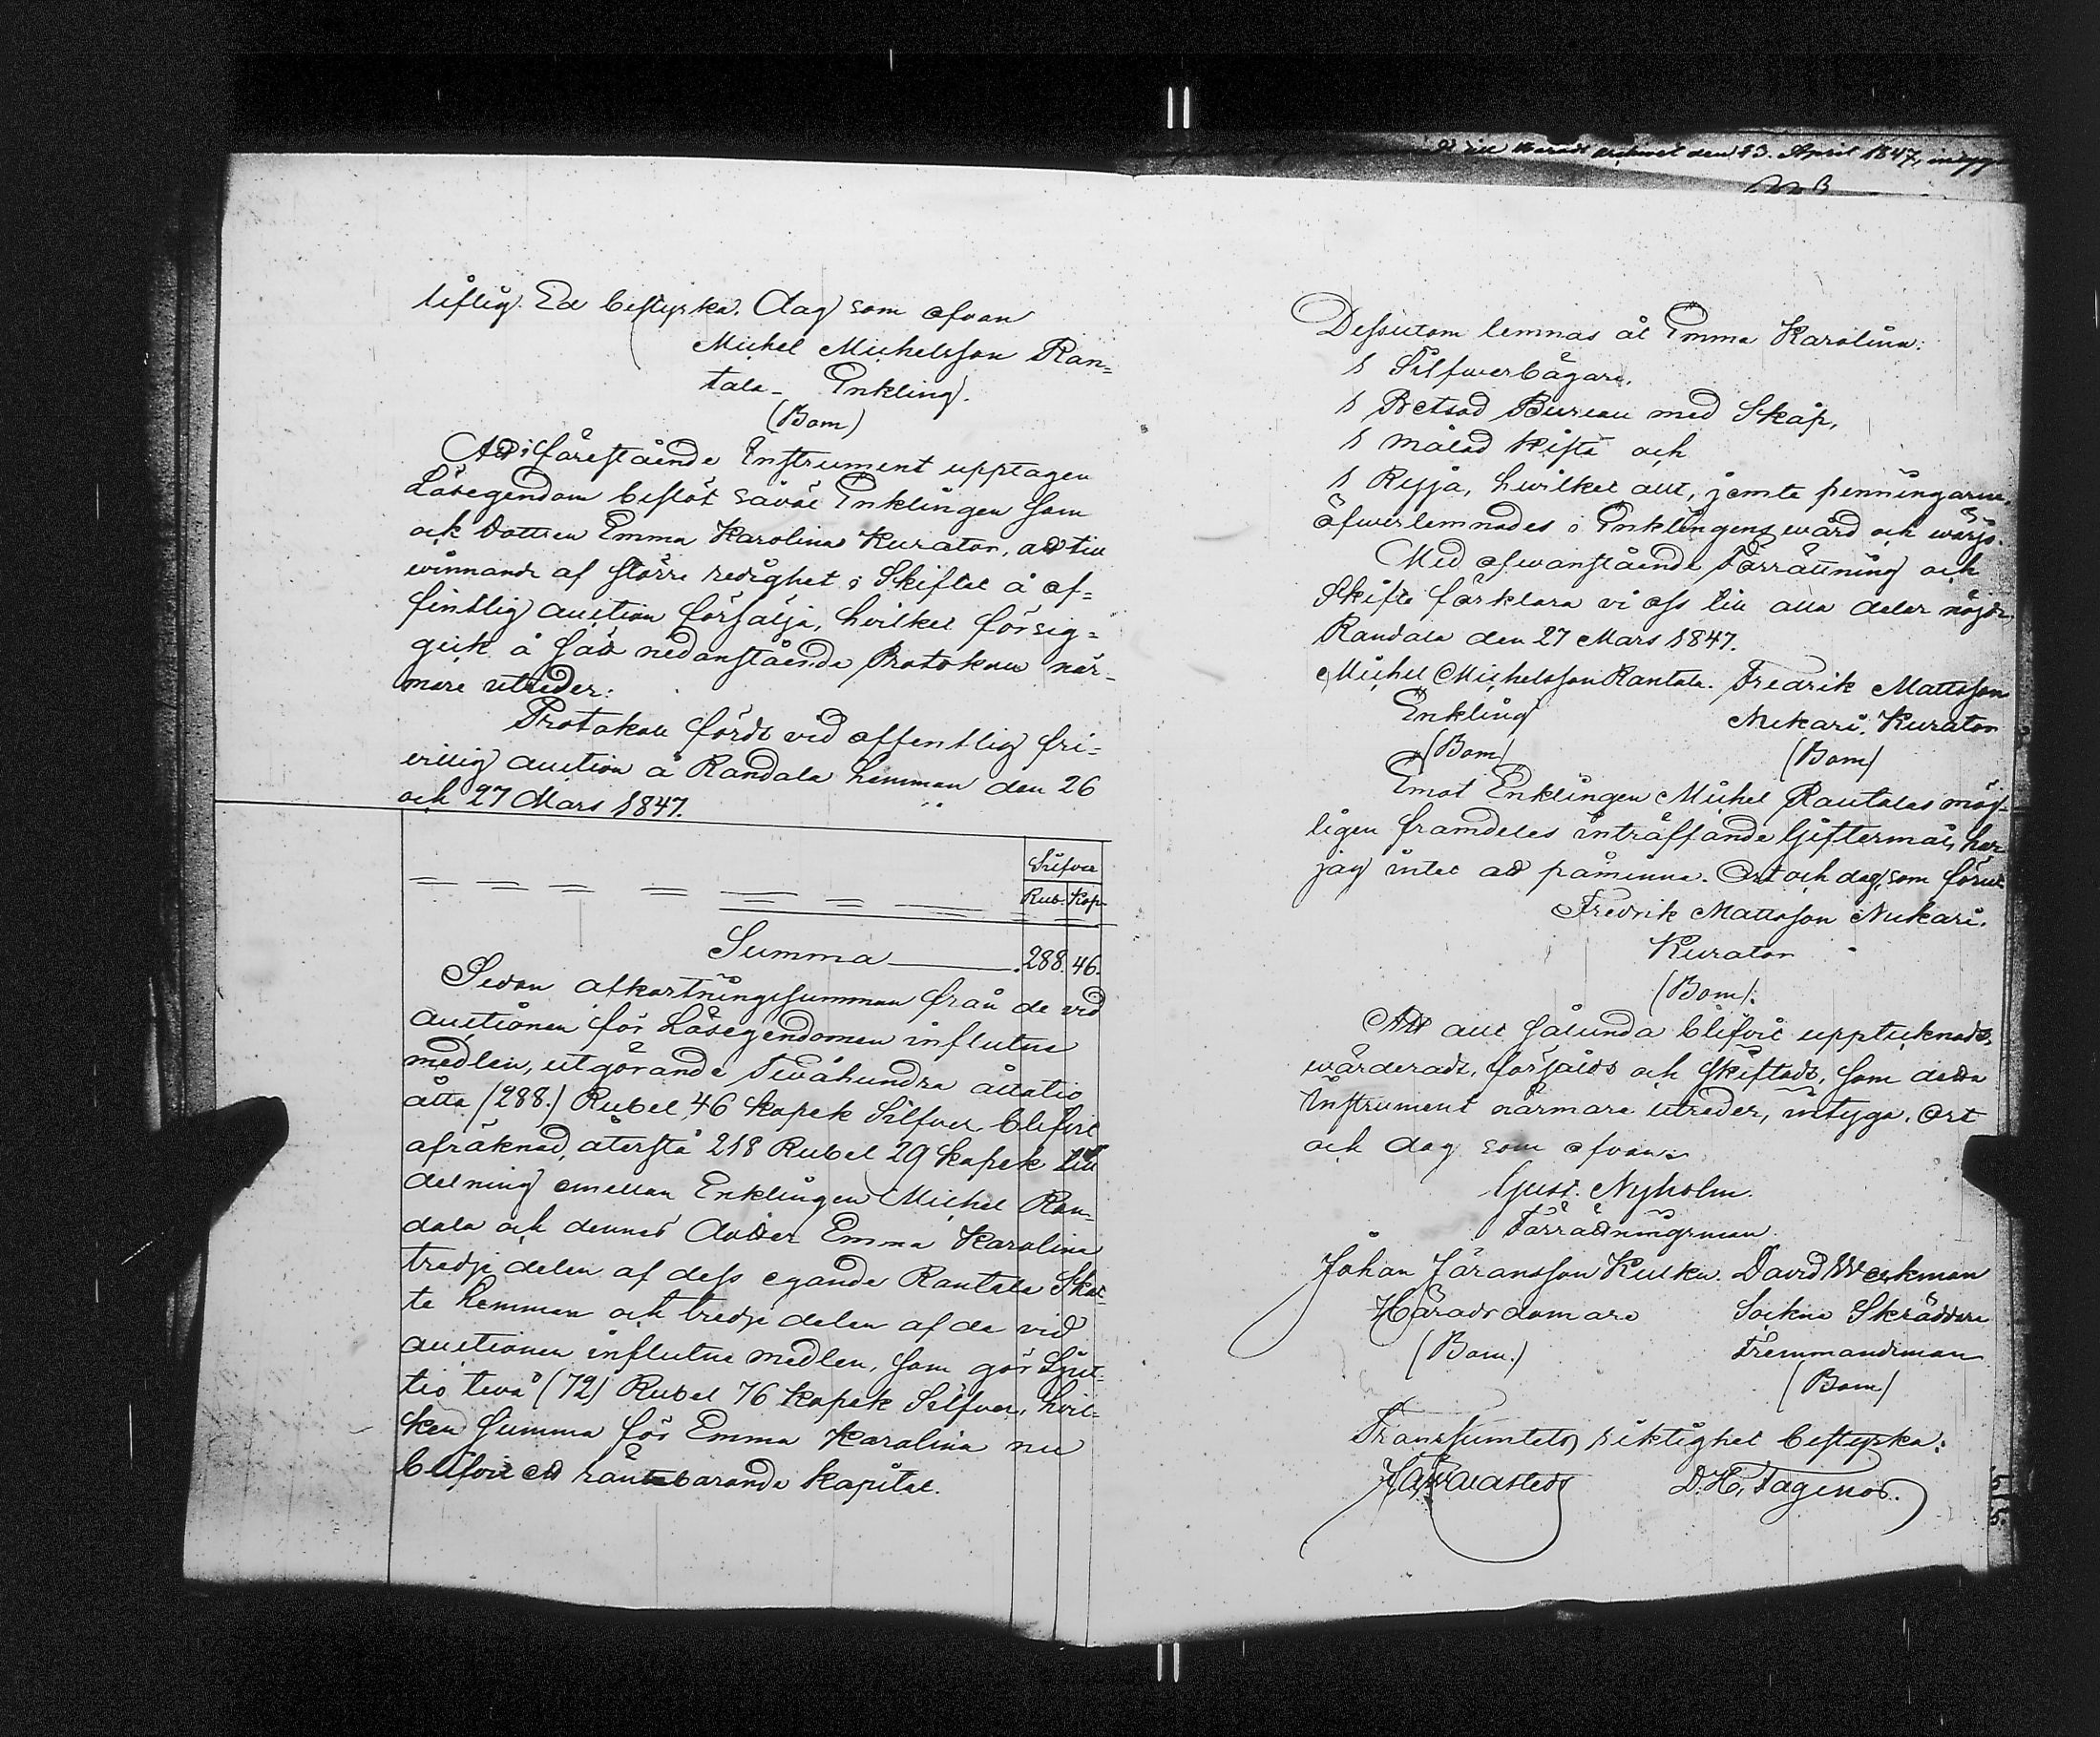 till Härads archivet den 13. April 1847, intyga
liflig Ed bestyrka. Dag som ofvan
Michel Michelsson Ran=
tala - Enkling.
(Bom)
All i förestående Instrument upptagen
Lösegendom beslöt såväl Enklingen som
ock dottren Emma Karolinas Kurator, att till
winnande af större redighet i Skiftet å of=
fentlig auction försälja, hvilket försig=
gick å sätt nedanstående Protokoll när=
mare utreder:
Protokoll fördt vid offentlig fri=
villig auction å Randala hemman den 26
och 27 Mars 1847.
Silfver
Rub. Kop.
Summa 288. 46.
Sedan afkortningssumman från de vid
auctionen för Lösegendomen influtne
medlen, utgörande Tvåhundra åttatio
åtta (288.) Rubel 46 kopek Silfver, blifvit
afräknad, återstå 218 Rubel 29 kopek till
delning emellan Enklingen Michel Ran=
dala och dennes dotter Emma Karolina
tredje delen af dess egande Rantala Skat=
te hemman och tredje delen af de vid
auctionen influtne medlen, som gör Sjut=
tio två (72) Rubel 76 kopek Silfver, hvil=
ken Summa för Emma Karolina nu
blifvit ett räntebärande kapital.
Dessutom lemnas åt Emma Karolina:
1 Silfwerbägare,
1 Betsad Bureau med Skåp,
1 målad kista och
1 Ryja, hwilket allt, jemte penningarne,
öfwerlemnades i Enklingens wård och wärjo.
Med ofwanstående Förrättning och
Skifte förklara vi oss till alla delar nöjde.
Randala den 27 Mars 1847.
Michel Michelsson Rantala. Fredrik Mattsson
Enkling Nukari, Kurator
(Bom) (Bom)
Emot Enklingen Michel Rantalas möj=
ligen framdeles inträffande Giftermål, har
jag intet att påminna. Ort och dag, som förut
Fredrik Mattsson Nukari.
Kurator
(Bom).
Att allt sålunda blifvit upptecknadt,
wärderadt, försåldt och skiftadt, som detta
Instrument närmare utreder, intyga. Ort
och dag som ofvan.
Gust. Nyholm.
Förrättningsman.
Johan Jöransson Kulku. David Werkman
Häradsdomare Sockne Skräddare
(Bom.) Fremmandeman
(Bom)
Transsumtets riktighet bestyrka:
D. H. Fagenos.